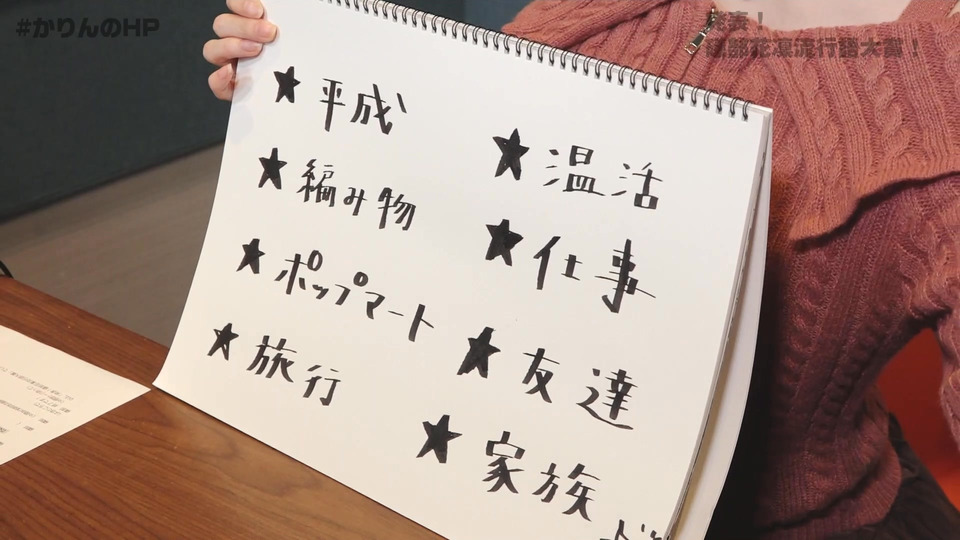 #かりんのHP
発表!
流行語大賞!
★平成
★編み物
★ポップマート
★旅行
★温活
★仕事
★友達
★家族